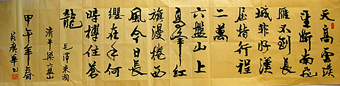 天高雲淡
望斷南飛
雁不到長
城非好漢
屈指行程
二萬
六盤山上
高峰紅
旗漫捲西
風今日長
纓在手何
時縛住蒼
龍
毛澤東詞
清平樂六盤山
甲午年春